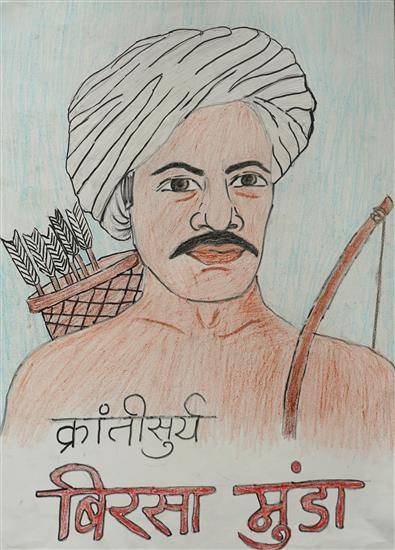 क्रांतीसुर्य
बिरसा मुंडा